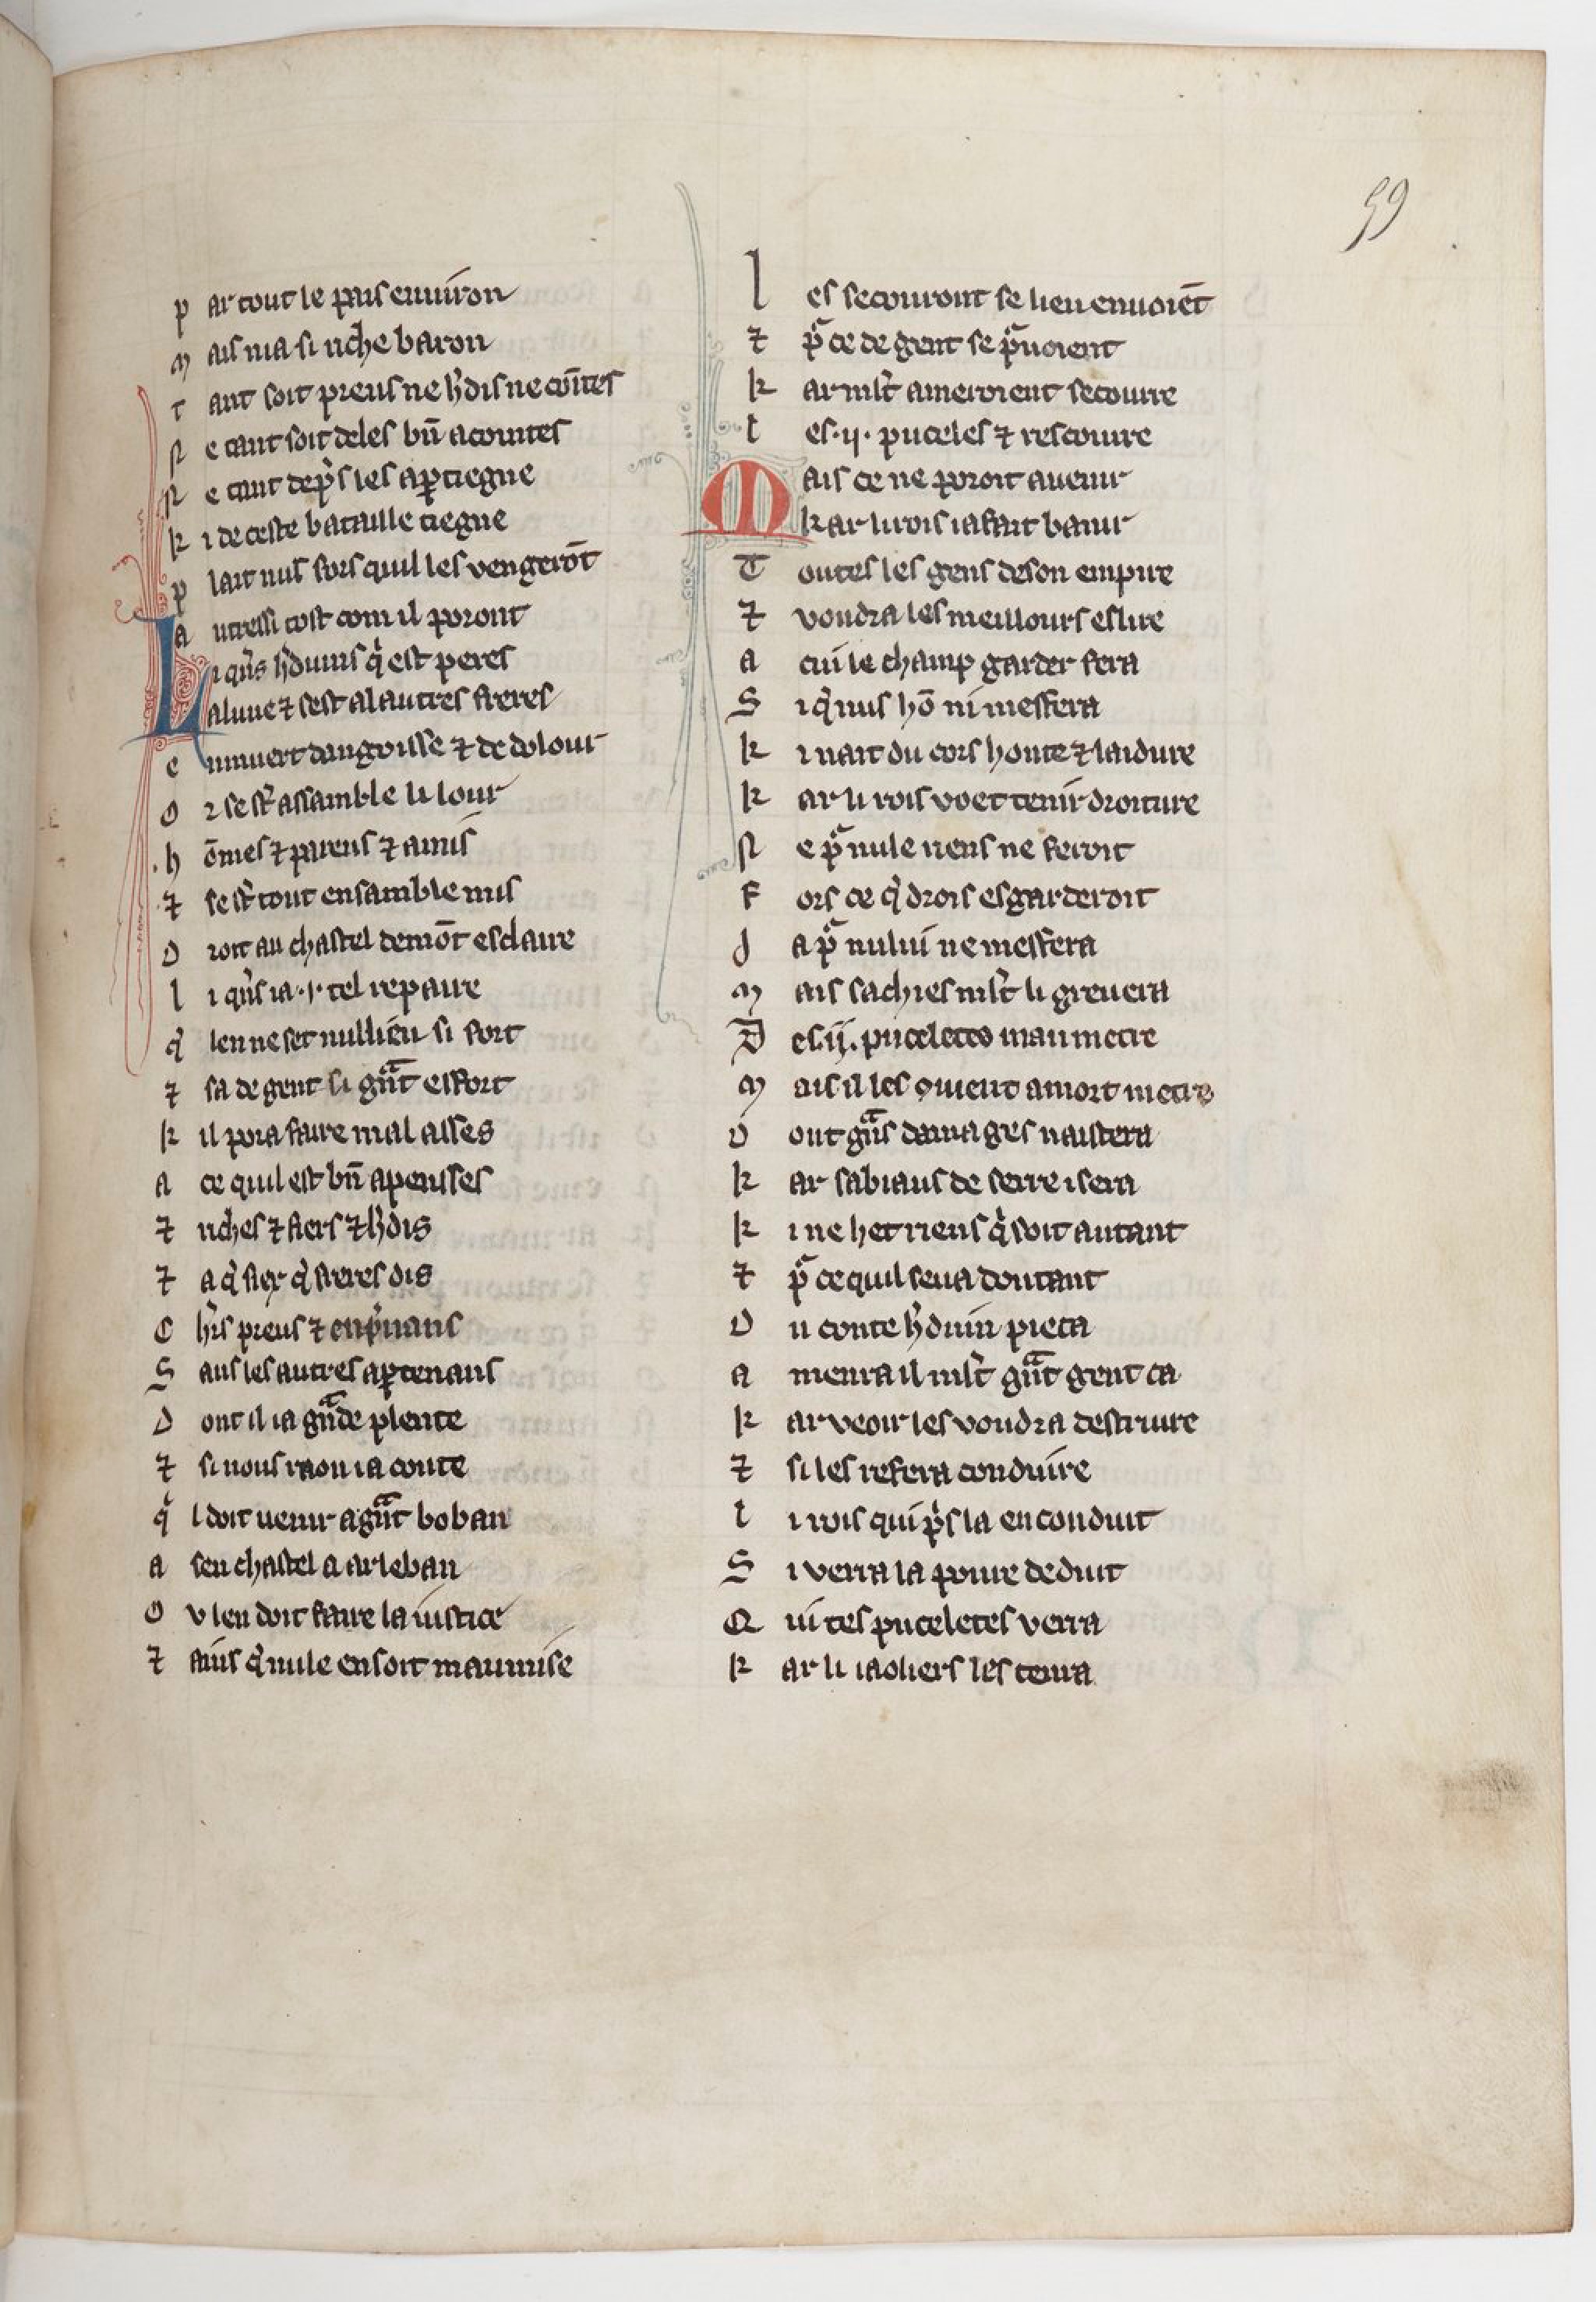 59
p ar tout le pais enuiron
m ais nia si riche baron
t ant soit preus ne h'dis ne cōtes
N e tant soit deles bn̄ acointes
N e tant de p's les ap̱tiegne
k i de ceste bataille tiegne
p lait nus fors quil les vengerōt
a utressi tost com il poront
L i qͥns h'duins qͥ est peres
a liuue ⁊ sest al autres freres
e nmuert dangoisse ⁊ de dolour
O r se st̕ assamble li lour
h ōmes ⁊ parens ⁊ amis
⁊ se st̕ tout ensamble mis
D roit au chastel de mōt esclaire
l i qͥns ia .i. tel repaire
qͥ len ne set nul lieu si fort
⁊ sa de gent si gͣnt esfort
k il pora faire mal asses
a ce quil est bn̄ apensses
⁊ riches ⁊ fiers ⁊ h'dis
⁊ a qͥ fiex qͥ freres dis
C h'rs preus ⁊ enp'nans
S ans les autres ap̱tenans
D ont il ia gͣnde plente
⁊ si nous raon ia conte
qͥ l doit uenir a gͣnt boban
a sen chastel a arleban
O v len doit faire la iustice
⁊ ains qͥ nule en soit maumise
l es secouront se lieu en uoiēt
⁊ pͣ ce de gent se pͣuoient
k ar mlt̕ ameroient secourre
l es .ij. puceles ⁊ rescourre
M ais ce ne poroit auenir
k ar li rois ia fait banir
T outes les gens de son empire
⁊ voudra les meillours eslire
a cui le champ garder fera
S i qͥ nus hō ni mesfera
k i nait du cors honte ⁊ laidure
k ar li rois voet tenir droiture
N e pͣ nule riens ne feroit
F ors ce qͥ drois esgarderoit
J a pͣ nului ne mesfera
m ais sachies mlt̕ li greuera
D es .ij. puceletes maumetre
m ais il les ꝯuient a mort metre
D ont gͣns damages naistera
k ar sabiaus de serre isera
k i ne het riens qͥ soit autant
⁊ pͣ ce quil seua doutant
D u conte h'duin pieca
a menra il mlt̕ gͣnt gent ca
k ar veoir les voudra destruire
⁊ si les refera conduire
l i rois qui p's la en conduit
S i verra la poure deduit
Q ui tes puceletes verra
k ar li iaoliers les tenra